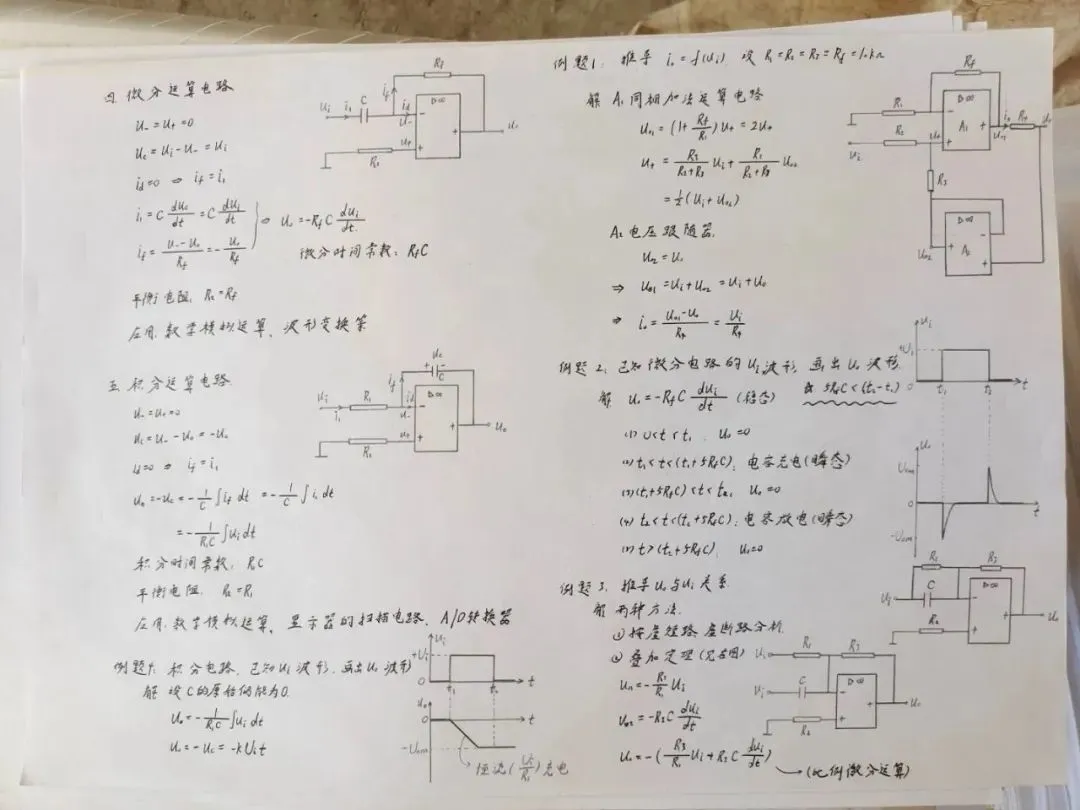 四. 微分运算电路
U₋ = U₊ = 0
U_c = U_i − U₋ = U_i
i_d = 0 ⇒ i_f = i₁
i₁ = C dU_c/dt = C dU_i/dt
i_f = (U₋ − U_o)/R_f = − U_o/R_f
⇒ U_o = −R_f C dU_i/dt
微分时间常数: R_f C
平衡电阻: R₂ = R_f
应用: 数学模拟运算、波形变换等
U_i i₁ C i_f R_f i_d U₋ U₊ R₂ ▷∞ − + + U_o
五. 积分运算电路
U₋ = U₊ = 0
U_c = U₋ − U_o = −U_o
i_d = 0 ⇒ i_f = i₁
U_o = −U_c = −1/C ∫ i_f dt = −1/C ∫ i₁ dt
= −1/(R₁C) ∫ U_i dt
积分时间常数: R₁C
平衡电阻: R₂ = R₁
应用: 数学模拟运算、显示器的扫描电路、A/D转换器
U_i i₁ R₁ i_f U_c + − C i_d U₋ R₂ ▷∞ − + + U_o
积分电路, 已知U_i波形, 画出U_o波形
解 设C的原始储能为0.
U_o = −1/(R₁C) ∫ U_i dt
U_o = −U_c = −kU_i t
U_i +U_i 0 t₁ t
U_o 0 t −U_om
恒流(U_i/R₁)充电
例题1: 推导 i_o = f(U_i) 设 R₁ = R₂ = R₃ = R_f = 10kΩ
解 A₁同相加法运算电路
U_o1 = (1 + R_f/R₁)U₊ = 2U₊
U₊ = R₃/(R₂+R₃) U_i + R₂/(R₂+R₃) U_o2
= ½(U_i + U_o2)
A₂电压跟随器
U_o2 = U_o
⇒ U_o1 = U_i + U_o2 = U_i + U_o
⇒ i_o = (U_o1 − U_o)/R_φ = U_i/R_φ
R_f R₁ R₂ U_i U₊ ▷∞ A₁ − + + U_o1 i_o R₃ U_o2 ▷∞ A₂ − + +
例题2: 已知微分电路的U_i波形, 画出U_o波形
5R_fC < (t₂ − t₁)
解 U_o = −R_f C dU_i/dt (稳态)
(1) 0 < t < t₁, U_o = 0
(2) t₁ < t < (t₁ + 5R_fC): 电容充电(瞬态)
(3) (t₁ + 5R_fC) < t < t₂, U_o = 0
(4) t₂ < t < (t₂ + 5R_fC): 电容放电(瞬态)
(5) t > (t₂ + 5R_fC), U_o = 0
U_i +U_i 0 t₁ t₂ t
U_o U_om 0 t −U_om
例题3: 推导U_o与U_i关系
解 两种方法:
① 按虚短路 虚断路分析
② 叠加定理(见右图)
U_o1 = −R₃/R₁ U_i
U_o2 = −R₃C dU_i/dt
U_o = −(R₃/R₁ U_i + R₃C dU_i/dt)
→ (比例微分运算)
R₁ R₃ U_i C R₂ ▷∞ − + + U_o
U_i R₁ R₃ U_i C R₂ ▷∞ − + + U_o